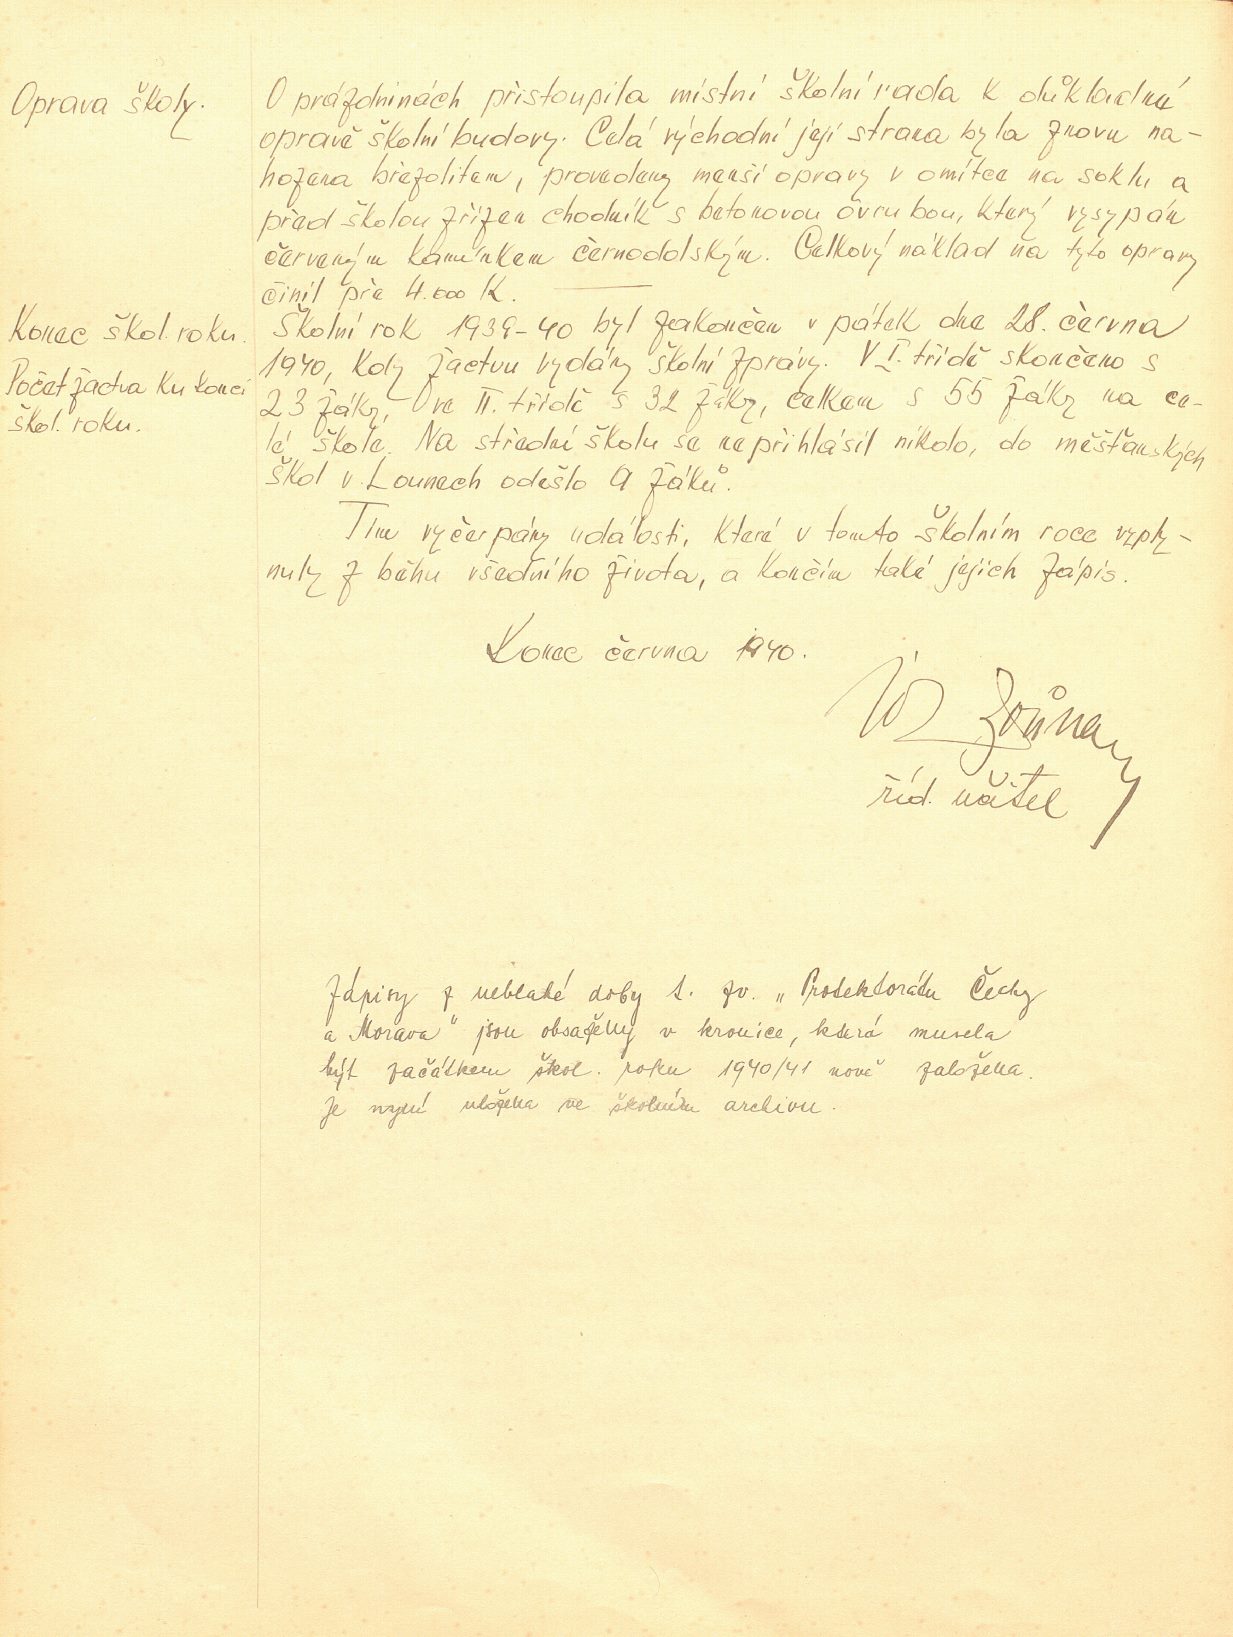 Oprava školy.
O prázdninách přistoupila místní školní rada k důkladné
opravě školní budovy. Celá východní její strana byla znovu na-
hozena břizolitem, provedeny menší opravy v omítce na soklu a
před školou zřízen chodník s betonovou obrubou, který vysypán
červeným kamínkem černodolským. Celkový náklad na tyto opravy
činil přes 4.000 K.
Konec škol. roku.
Školní rok 1939-40 byl zakončen v pátek dne 28. června
1940, kdy žactvu vydány školní zprávy. V I. třídě skončeno s
Počet žactva ku konci
škol. roku.
23 žáky, ve II. třídě s 32 žáky, celkem s 55 žáky na ce-
lé škole. Na střední školu se nepřihlásil nikdo, do měšťanských
škol v Lounech odešlo 9 žáků.
Tím vyčerpány události, které v tomto školním roce vyply-
nuly z běhu všedního života, a končím také jejich zápis.
Konec června 1940.
říd. učitel
Zápisy z neblahé doby t. zv. „Protektorátu Čechy
a Morava" jsou obsaženy v kronice, která musela
být začátkem škol. roku 1940/41 nově založena.
Je nyní uložena ve školním archivu.